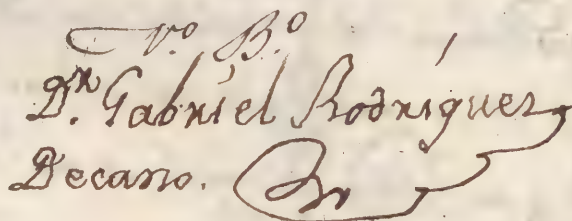 V.º B.º
D.ⁿ Gabriel Rodriguez
Decano.